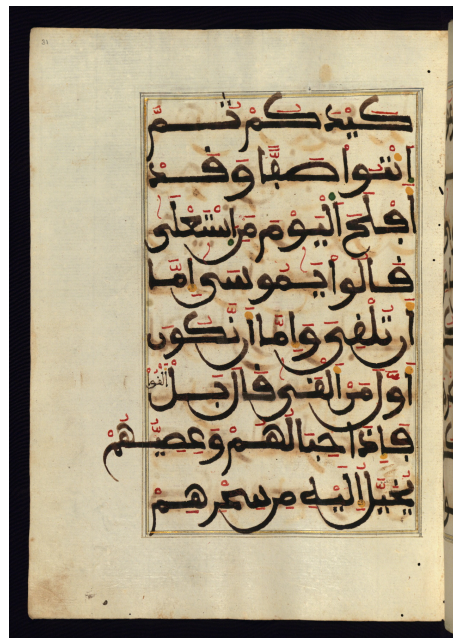 كَيْدَكُمْ ثُمَّ
ائْتُوا صَفًّا وَقَدْ
أَفْلَحَ الْيَوْمَ مَنِ اسْتَعْلَى
قَالُوا يَمُوسَى إِمَّا
أَن تُلْقِىَ وَإِمَّا أَن نَّكُونَ
أَوَّلَ مَنْ أَلْقَى قَالَ بَلْ أَلْقُوا
فَإِذَا حِبَالُهُمْ وَعِصِيُّهُمْ
يُخَيَّلُ إِلَيْهِ مِن سِحْرِهِمْ